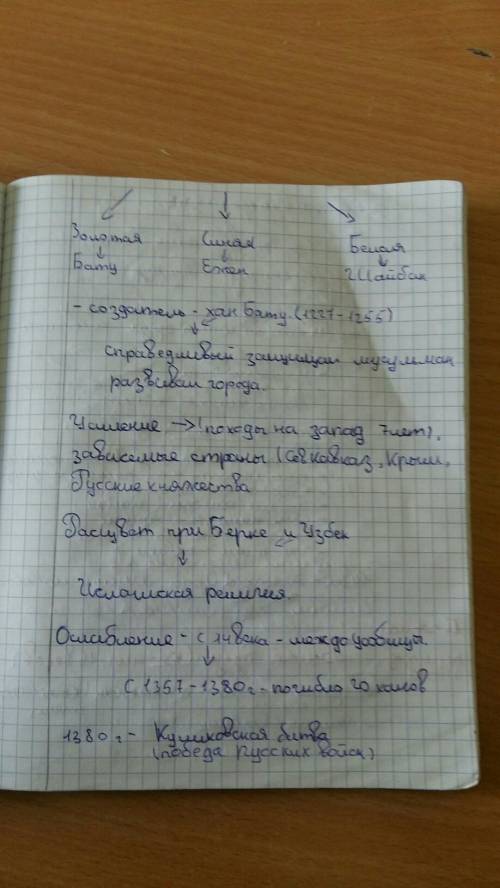 Золотая Синая Белая
Бату Ежен Шайбан
- создатель - хан Бату (1227-1255)
справедливый защищал мусульман
развивал города.
Усиление → (походы на запад 7 лет),
зависимые страны (Сев Кавказ, Крым,
Русские княжества
Расцвет при Берке и Узбек
Исламская религия.
Ослабление - с 14 века - междоусобицы.
С 1357-1380 г. - погибло 20 ханов
1380 г - Куликовская битва
(победа русских войск)